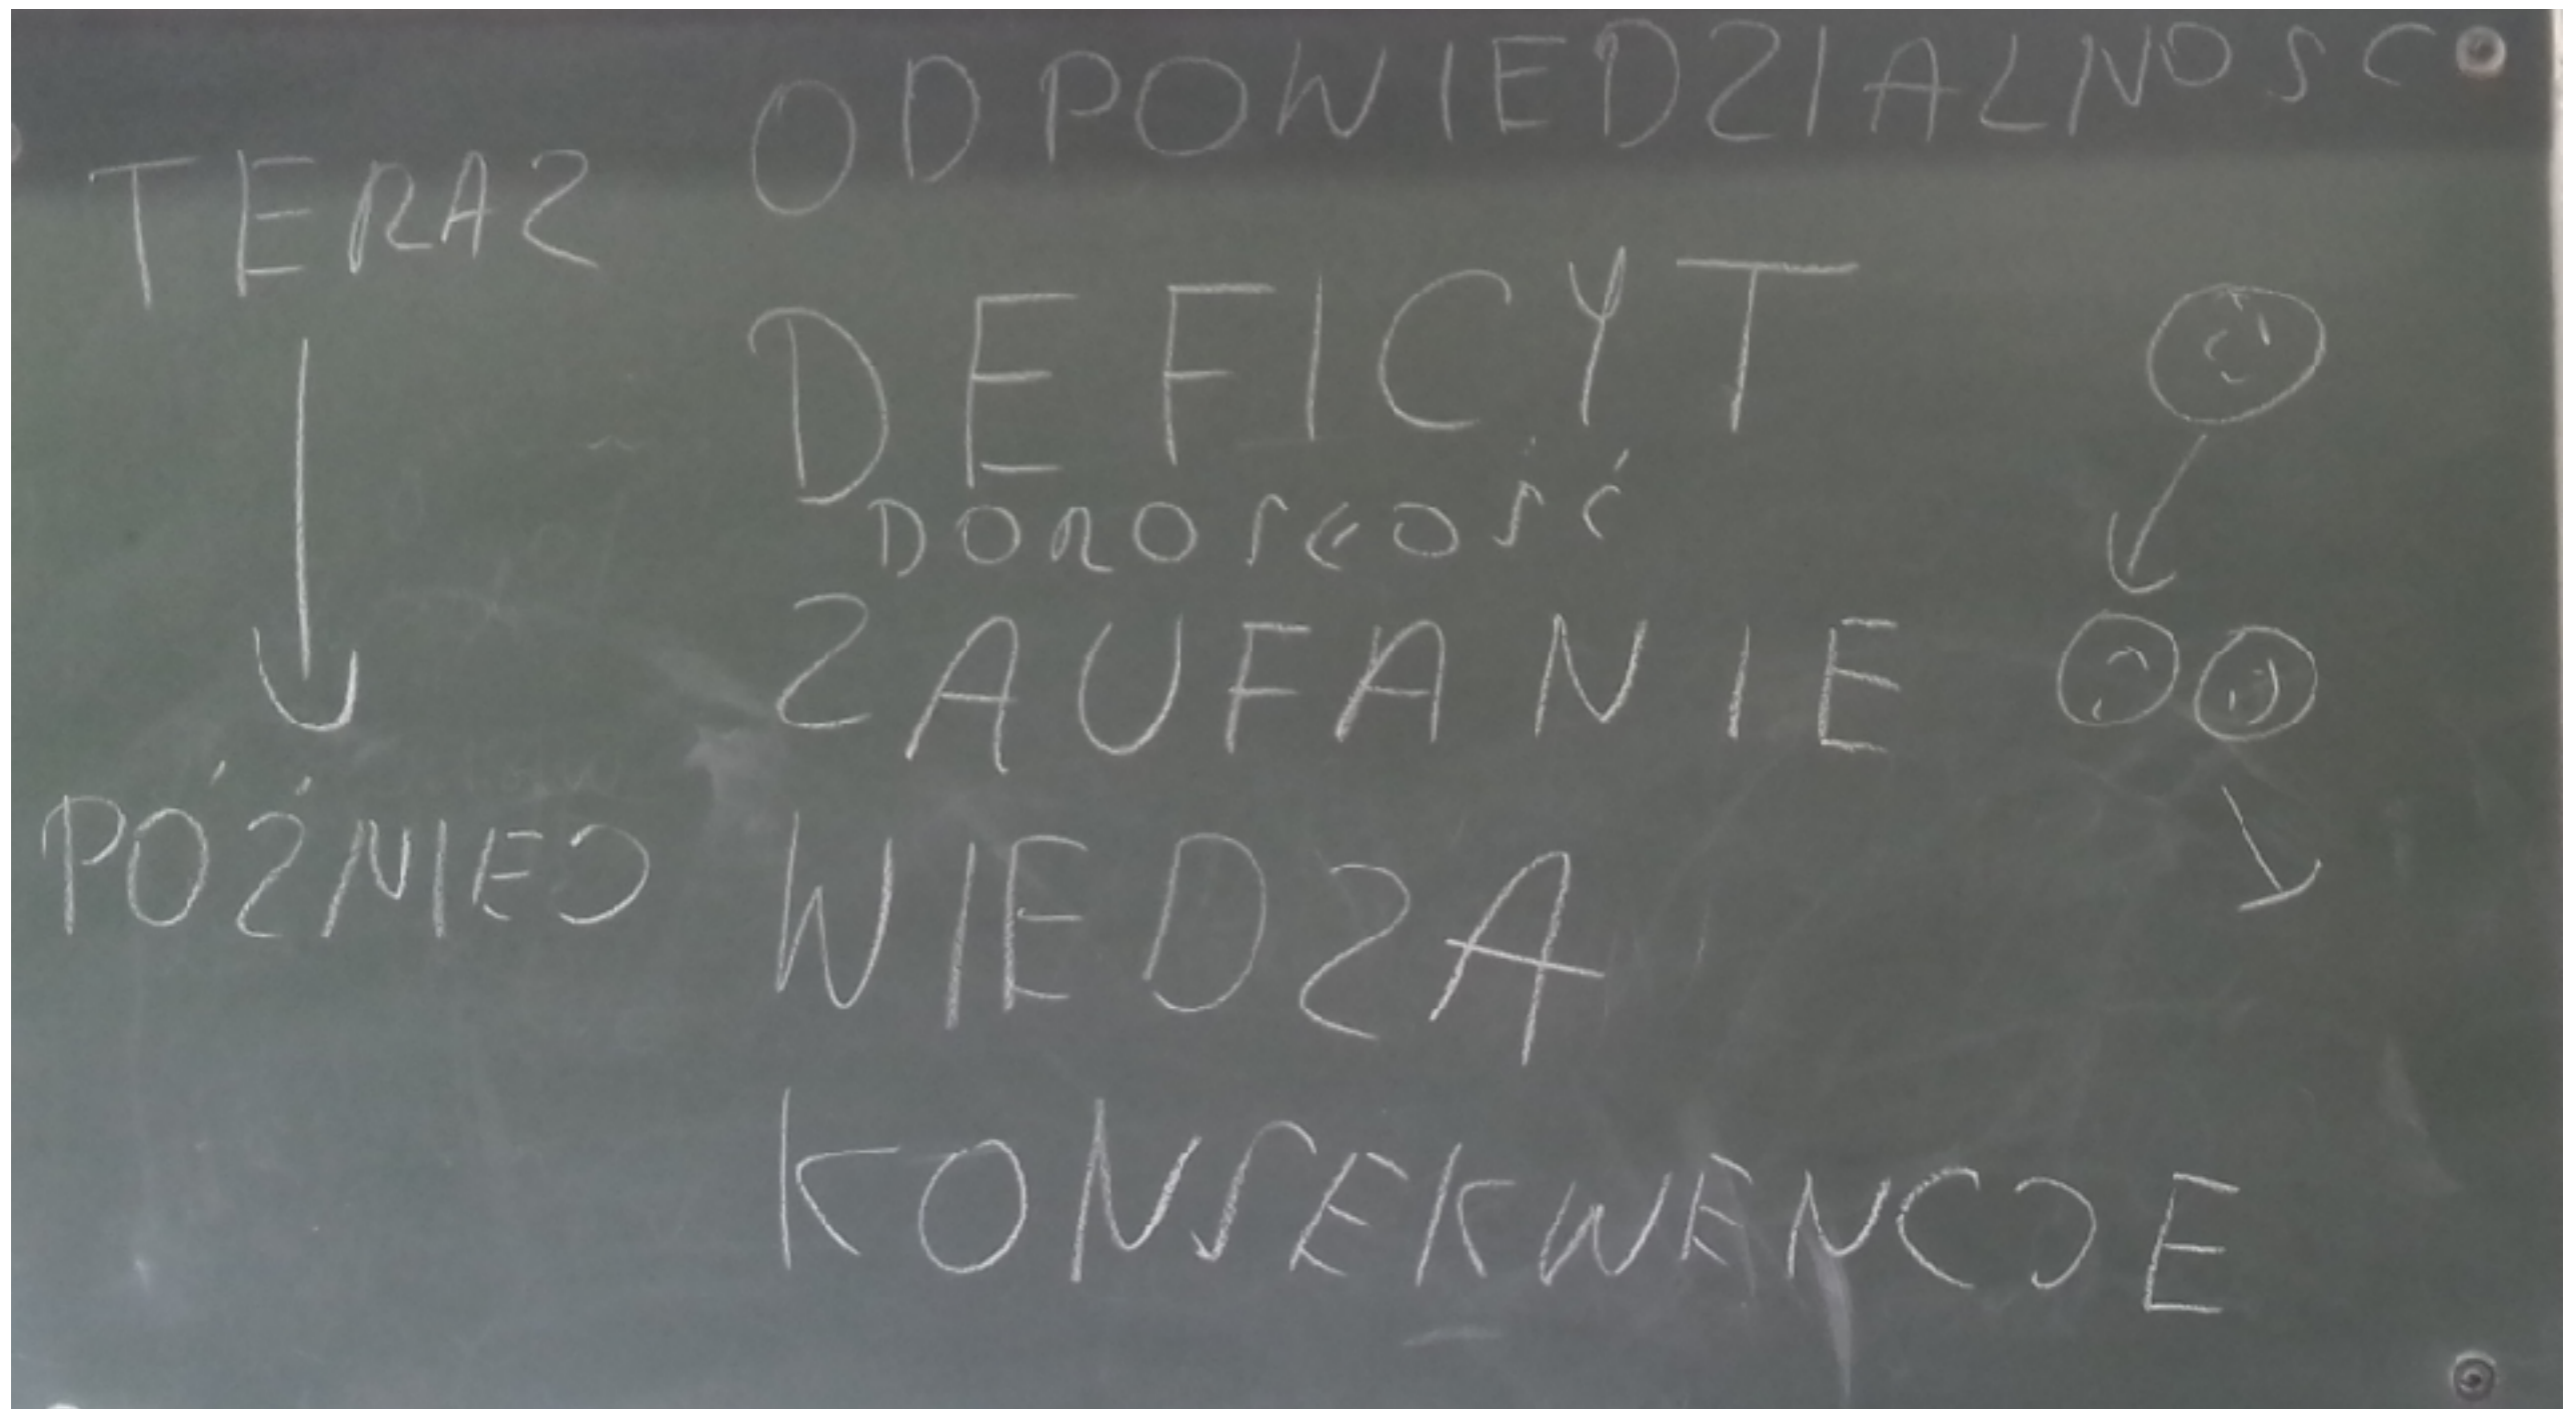 ODPOWIEDZIALNOSC
TERAZ
DEFICYT
DOROSŁOŚĆ
ZAUFANIE
PÓŹNIEJ
WIEDZA
KONSEKWENCJE